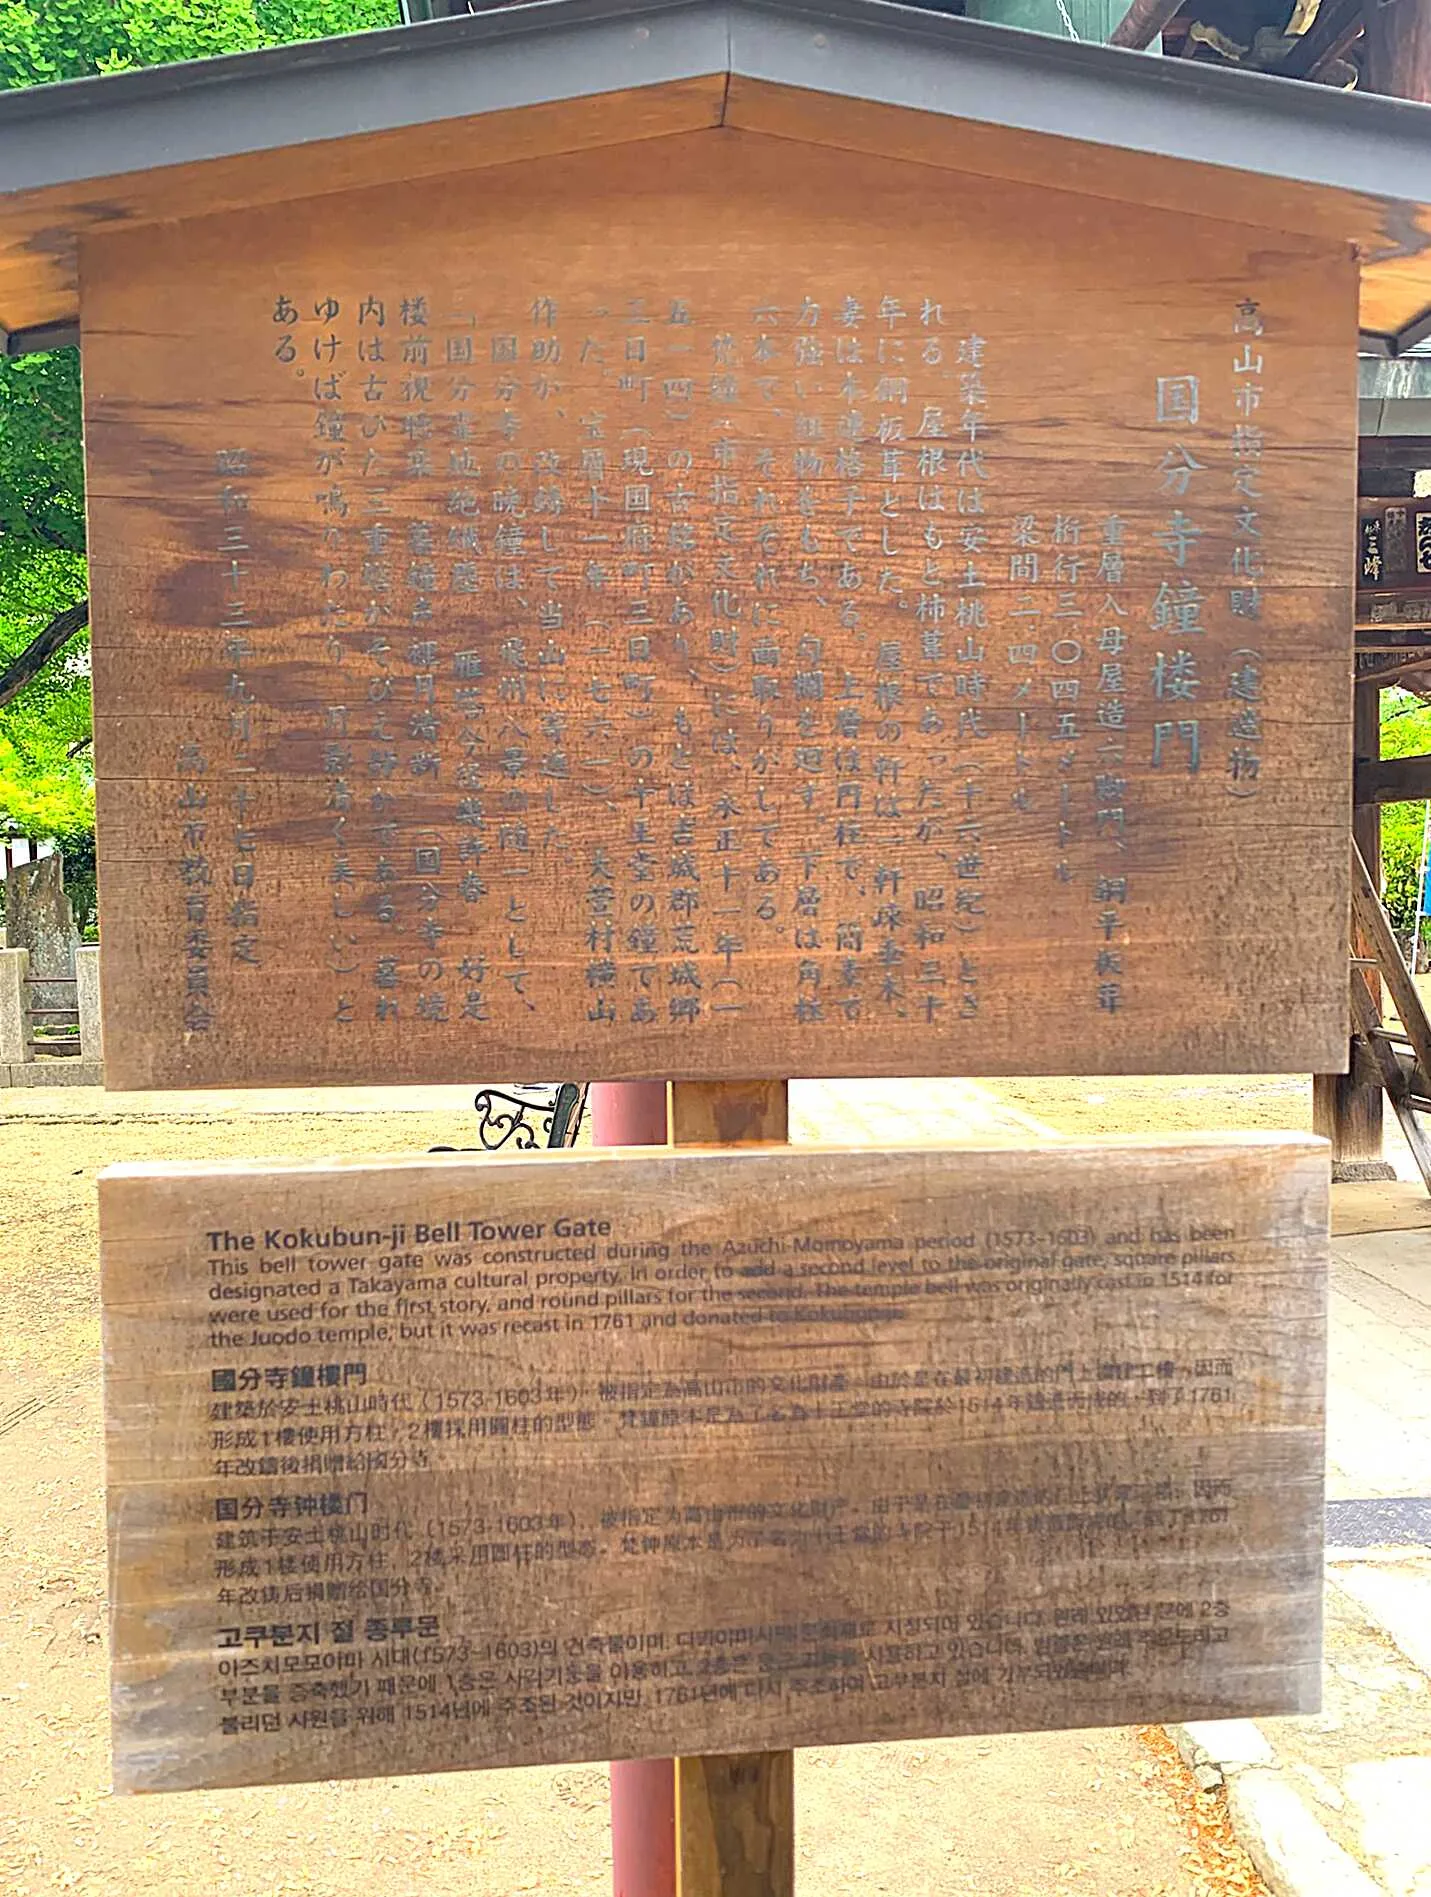 高山市指定文化財（建造物）
国分寺鐘楼門
重層入母屋造六脚門、銅平板葺
桁行三〇四五メートル
梁間二四メートル
建築年代は安土桃山時代（十六世紀）とさ
れる。屋根はもと柿葺であったが、昭和三十
年に銅板葺とした。屋根の軒は一軒疎垂木、
妻は木連格子である。上層は円柱で、簡素で
力強い組物をもち、勾欄を廻す。下層は角柱
六本で、それぞれに面取りがしてある。
梵鐘（市指定文化財）には、永正十一年（一
五一四）の古銘があり、もとは吉城郡荒城郷
三日町（現国府町三日町）の十王堂の鐘であ
った。宝暦十一年（一七六一）、大萱村横山
作助が、改鋳して当山に寄進した。
国分寺の晩鐘は、飛州八景の随一として、
「国分霊地絶纎塵 雁塔今径幾許春 好是
楼前視聴 暮鐘声裡月 」（国分寺の境
内は古びた三重塔がそびえ静かである。暮れ
ゆけば鐘が鳴りわたり、月影清く美しい）と
ある。
昭和三十三年九月二十七日指定
高山市教育委員会
The Kokubun-ji Bell Tower Gate
This bell tower gate was constructed during the Azuchi-Momoyama period (1573-1603) and has been
designated a Takayama cultural property. In order to add a second level to the original gate, square pillars
were used for the first story, and round pillars for the second. The temple bell was originally cast in 1514 for
the Juodo temple, but it was recast in 1761 and donated to Kokubun-ji.
國分寺鐘樓門
建築於安土桃山時代（1573-1603年），被指定為高山市的文化財產。由於是在最初建造的門上擴建二樓，因而
形成1樓使用方柱，2樓採用圓柱的型態。梵鐘原本是為了名為十王堂的寺院於1514年鑄造而成的，到了1761
年改鑄後捐贈給國分寺。
国分寺钟楼门
建筑于安土桃山时代（1573-1603年），被指定为高山市的文化财产。由于是在最初建造的门上扩建二楼，因而
形成1楼使用方柱，2楼采用圆柱的型态。梵钟原本是为了名为十王堂的寺院于1514年铸造而成的，到了1761
年改铸后捐赠给国分寺。
고쿠분지 절 종루문
아즈치모모야마 시대(1573-1603)의 건축물이며, 다카야마시 문화재로 지정되어 있습니다. 원래 있었던 문에 2층
부분을 증축했기 때문에 1층은 사각기둥을 이용하고, 2층은 둥근 기둥을 사용하고 있습니다. 범종은 원래 주오도라고
불리던 사원을 위해 1514년에 주조된 것이지만, 1761년에 다시 주조하여 고쿠분지 절에 기부되었습니다.